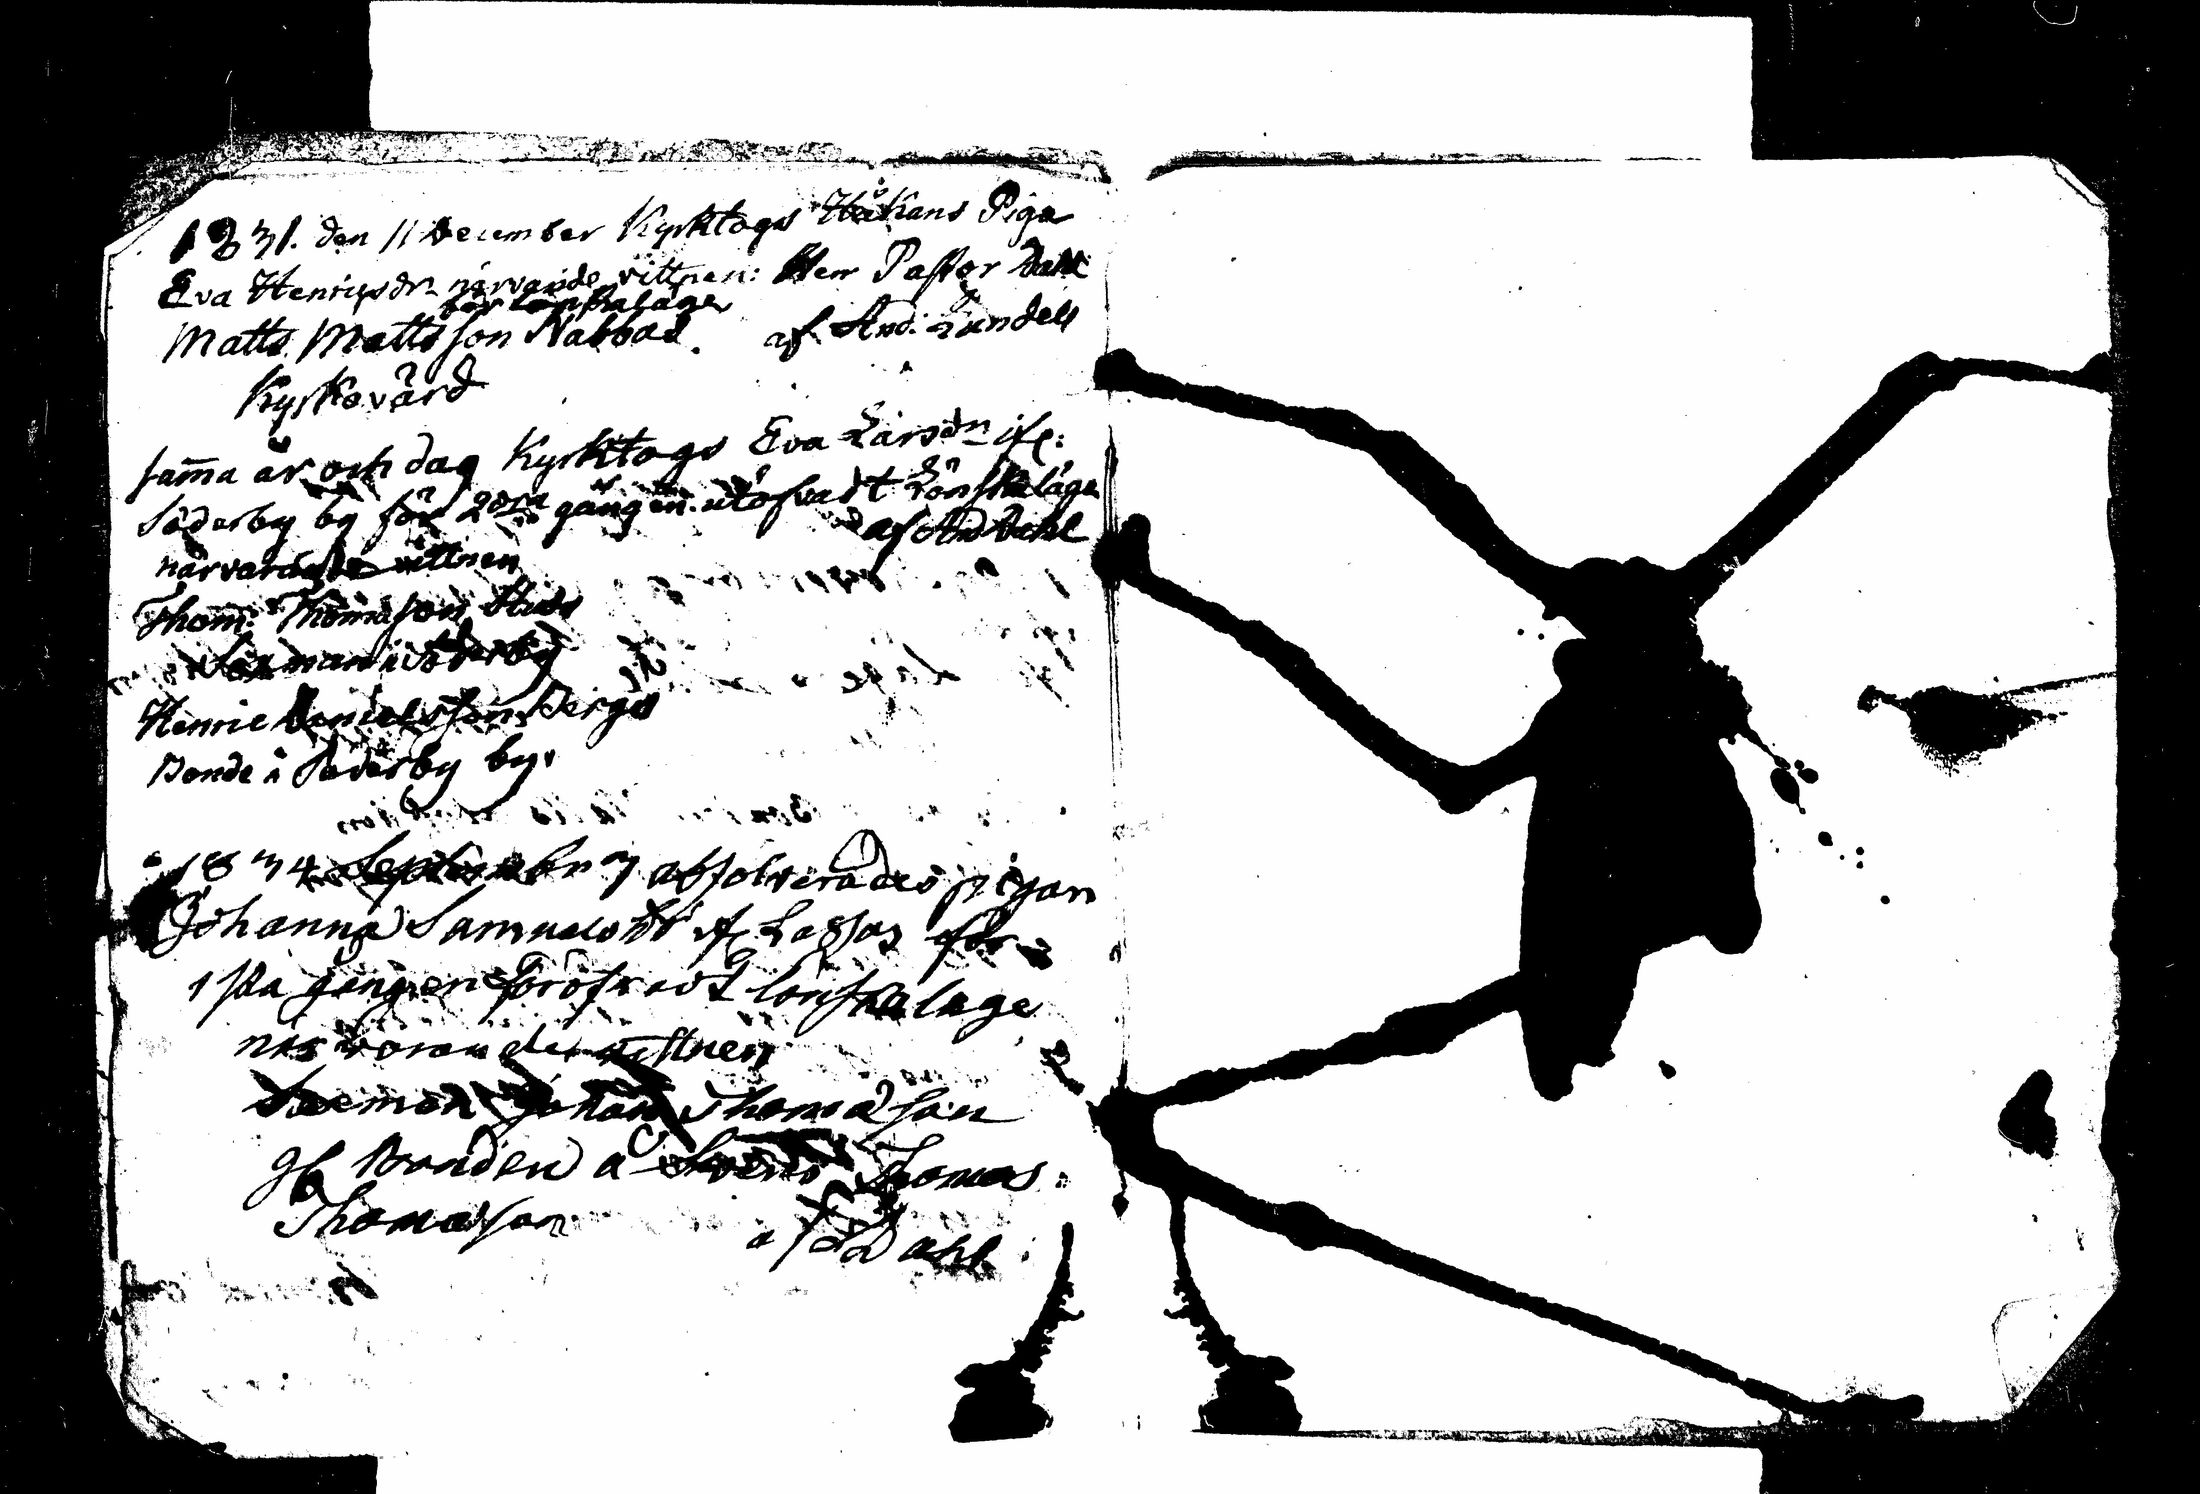 1831. den 11 December Kyrktogs Håkans Piga
Eva Henricsdr närvande vittnen: Herr Pastor Dahl
för lönskaläge
Matts Mattsson Nabbas. af And: Lundell
Kyrkovärd
samma år och dag Kyrktogs Eva Larsdn
Söderby by för 2dra gången utöfvadt Lönskaläge
af And Dahl
närvarande vittnen
Thom: Thomasson
Sexman i Söderby
Henric Danielsson Bergs
Bonde i Söderby by.
1834 September 7 absolverades pigan
Johanna Samuelsdr för
1sta gången föröfvadt lönskalage
närvarande vittnen
Sexman Johan Thomasson
Bonden Thomas
Thomasson
af Dahl